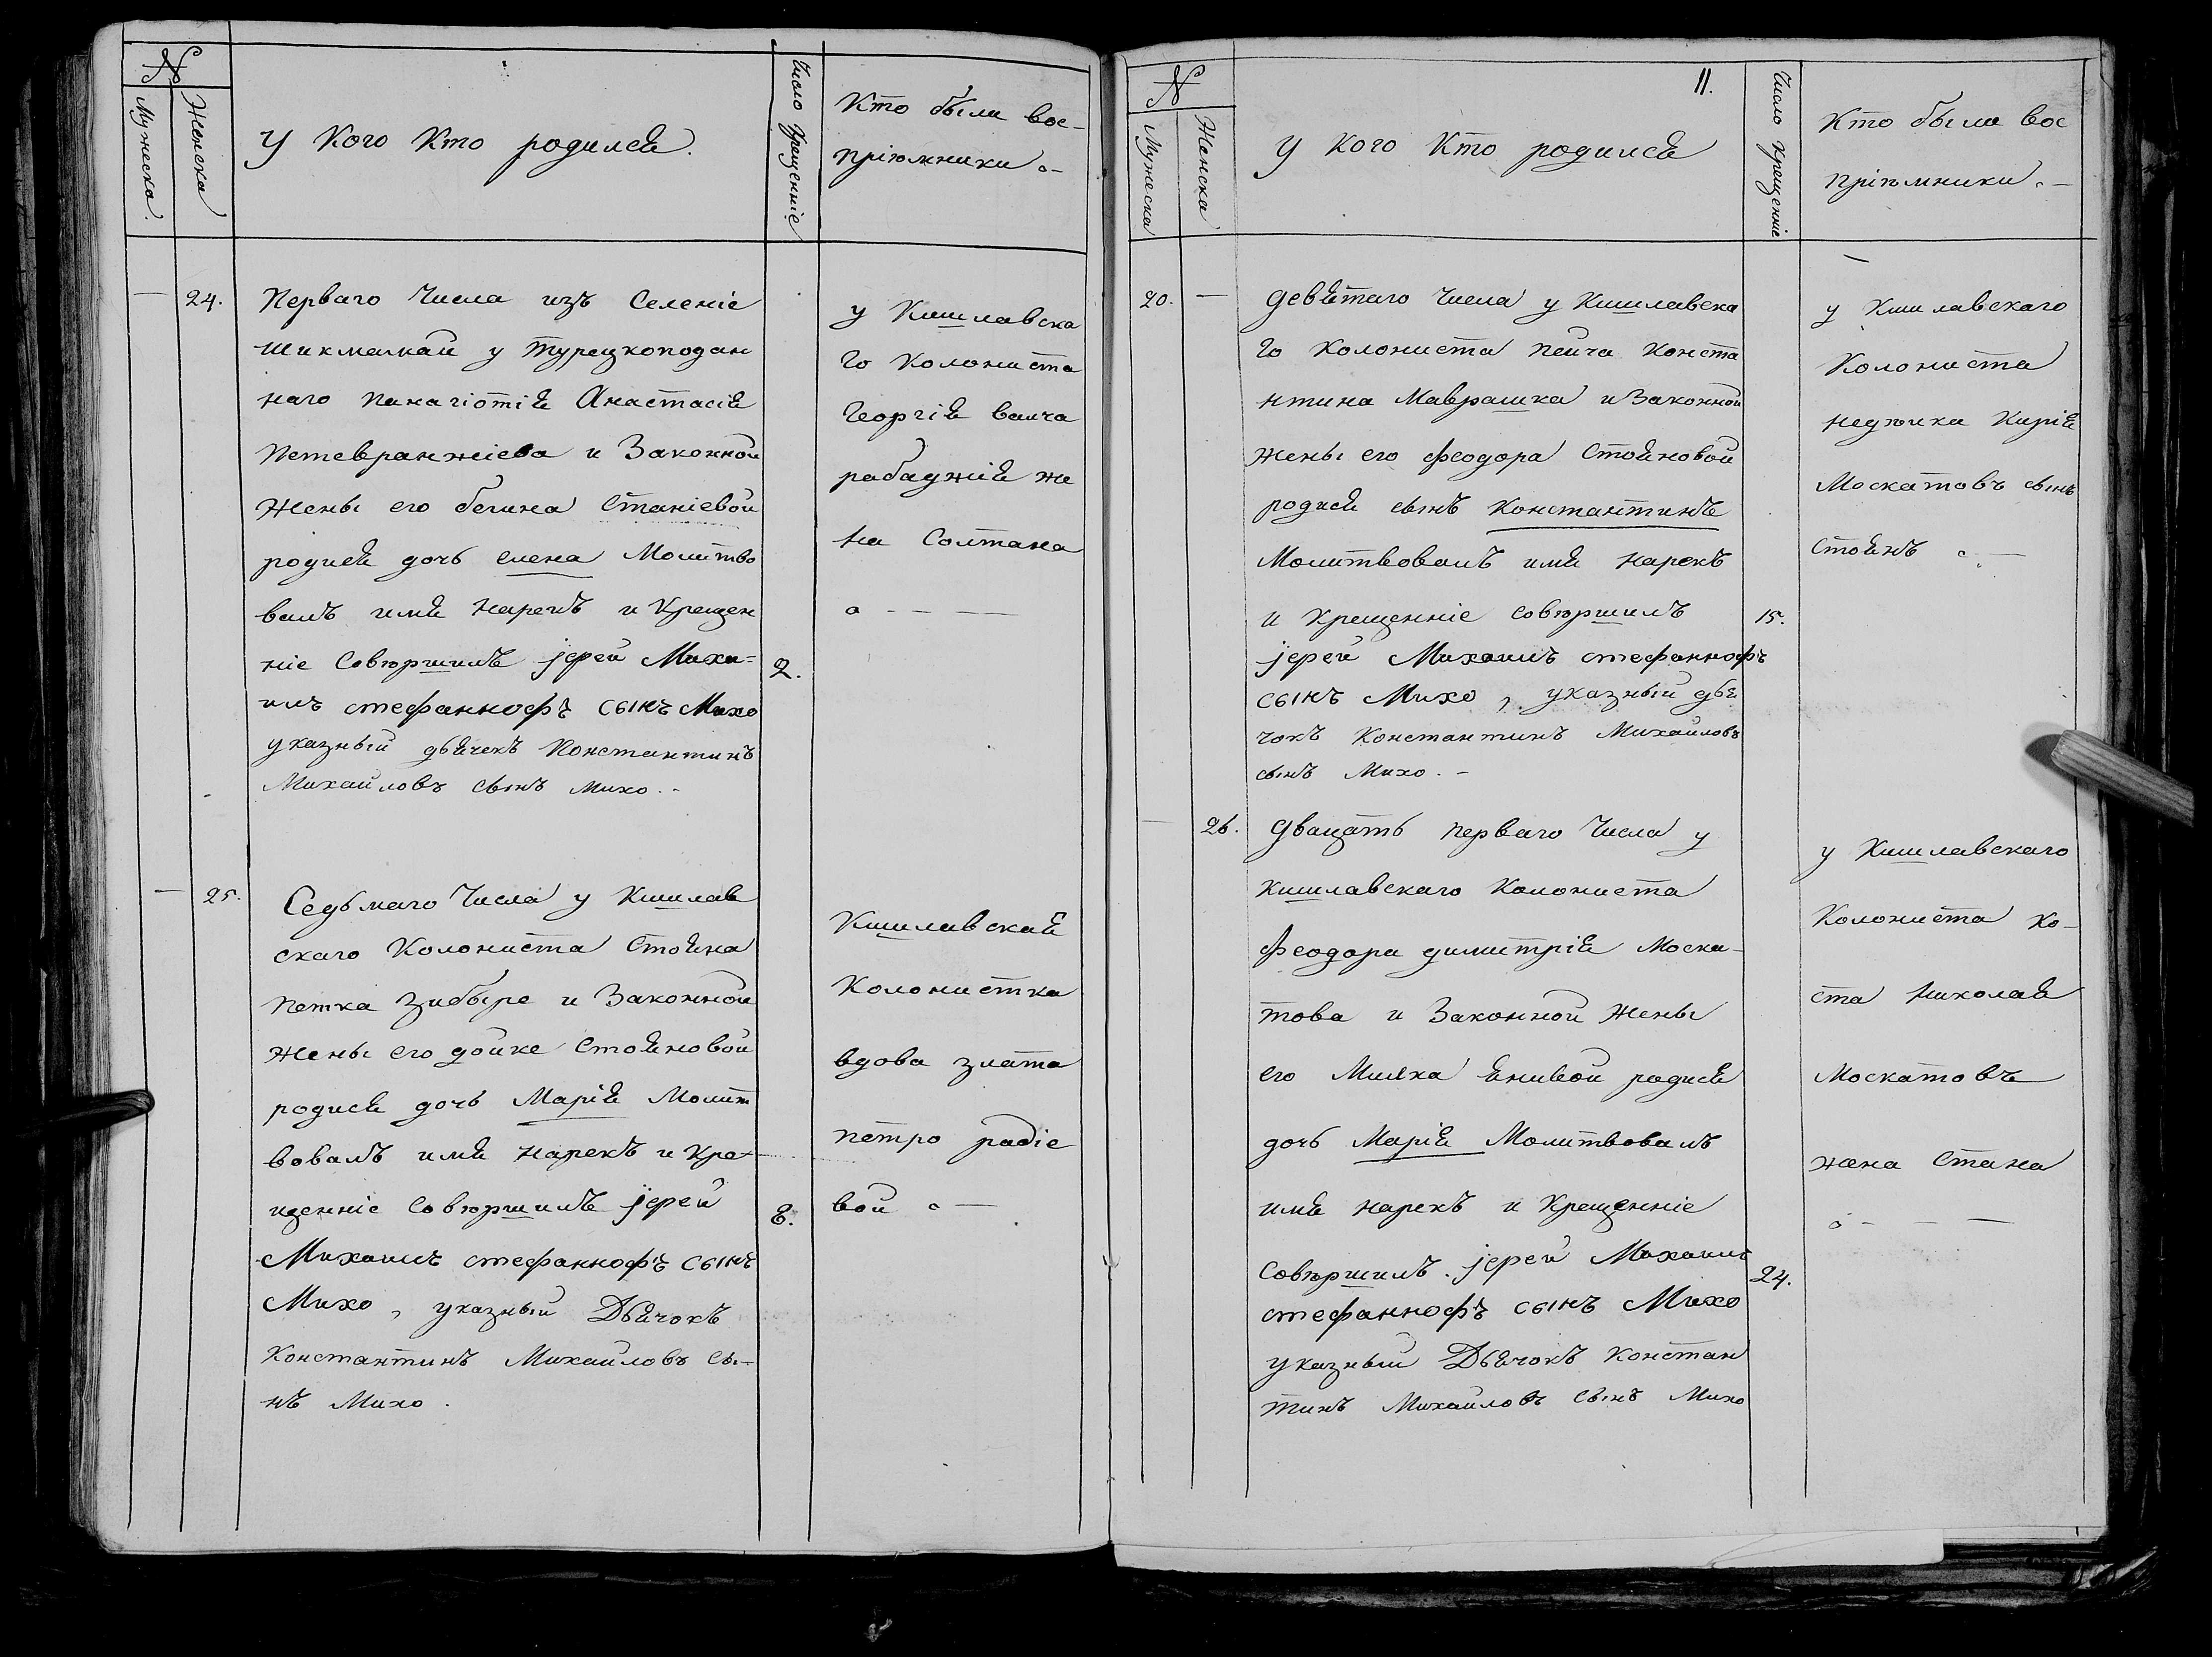 №
Мужеска.
Женска
У Кого Кто родился.
Число Крещенніе
Кто были вос-
пріюмники.-
24.
Перваго Числа изъ Селеніе
Шикмамай у Турецкоподан
наго Панагіотія Анастасія
Петевранжіева и Законной
Жены его бегина Станіевой
родися дочь елена Молитво
валъ имя Нарекъ и Крещен
ніе Совюршилъ јерей Михи=
илъ стефанноф'ъ сынъ Михо
указный дьячекъ Константинъ
Михайловъ сынъ Михо.-
2.
у Кишлавска
го Колониста
Георгія ванча
рабаджія же
на Солтана
25.
Седьмаго Числа у Кишлав
скаго Колониста Стояна
Петка Зибыре и Законной
Жены его дойке Стояновой
родися дочь Марія Молит
вовалъ имя нарекъ и Кре-
щенніе Совюршилъ јерей
Михаилъ стефанноф'ъ сынъ
Михо, указный Дьячокъ
Константинъ Михайловъ сы-
нъ Михо.
8.
Кишлавская
Колонистка
вдова злата
петро радіе
вой
11.
№
Мужеска
Женска
У Кого Кто родился
Число Крещенніе
Кто были вос
пріюмники.-
20.
девятаго Числа у Кишлавска
го Колониста пейча Конста
нтина Маврашка и Законной
Жены его Феодора Стояновой
родися сынъ Константинъ
Молитвовалъ имя нарекъ
и Крещенніе совюршилъ
јерей Михаилъ стефанноф'ъ
сынъ Михо, указный дья
чокъ Константинъ Михайловъ
сынъ Михо.-
15.
у Кишлавскаго
Колониста
недюлка Кирія
Москатовъ сынъ
стоянъ
26.
Двацать перваго Числа у
Кишлавскаго Колониста
Феодора димитрія Моска-
това и Законной Жены
его Милка Янивой родися
дочь Марія Молитвовалъ
имя нарекъ и Крещенніе
Совюршилъ. јерей Михаилъ
стефанноф'ъ сынъ Михо
указный Дьячокъ Констан
тинъ Михайловъ сынъ Михо
24.
у Кишлавскаго
Колониста Ко-
ста Николая
Москатовъ
жена Стана